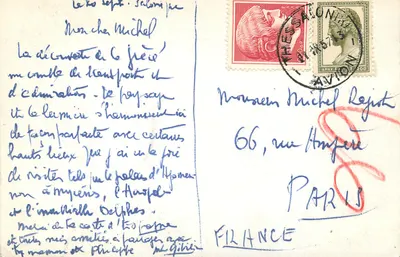 Mon cher Michel
La découverte de la Grèce
me comble de transports et
d'admiration. Le paysage
et la lumière s'harmonisent ici
de façon parfaite avec certains
hauts lieux que j'ai eu la joie
de visiter tels que le palais
à Mycènes, l'Acropole
et Delphes.
Merci de ta carte d'Espagne
et mes amitiés à partager avec
ta maman et Philippe
THESSALONIKI
AVION
Monsieur Michel
66, rue Ampère
PARIS
FRANCE